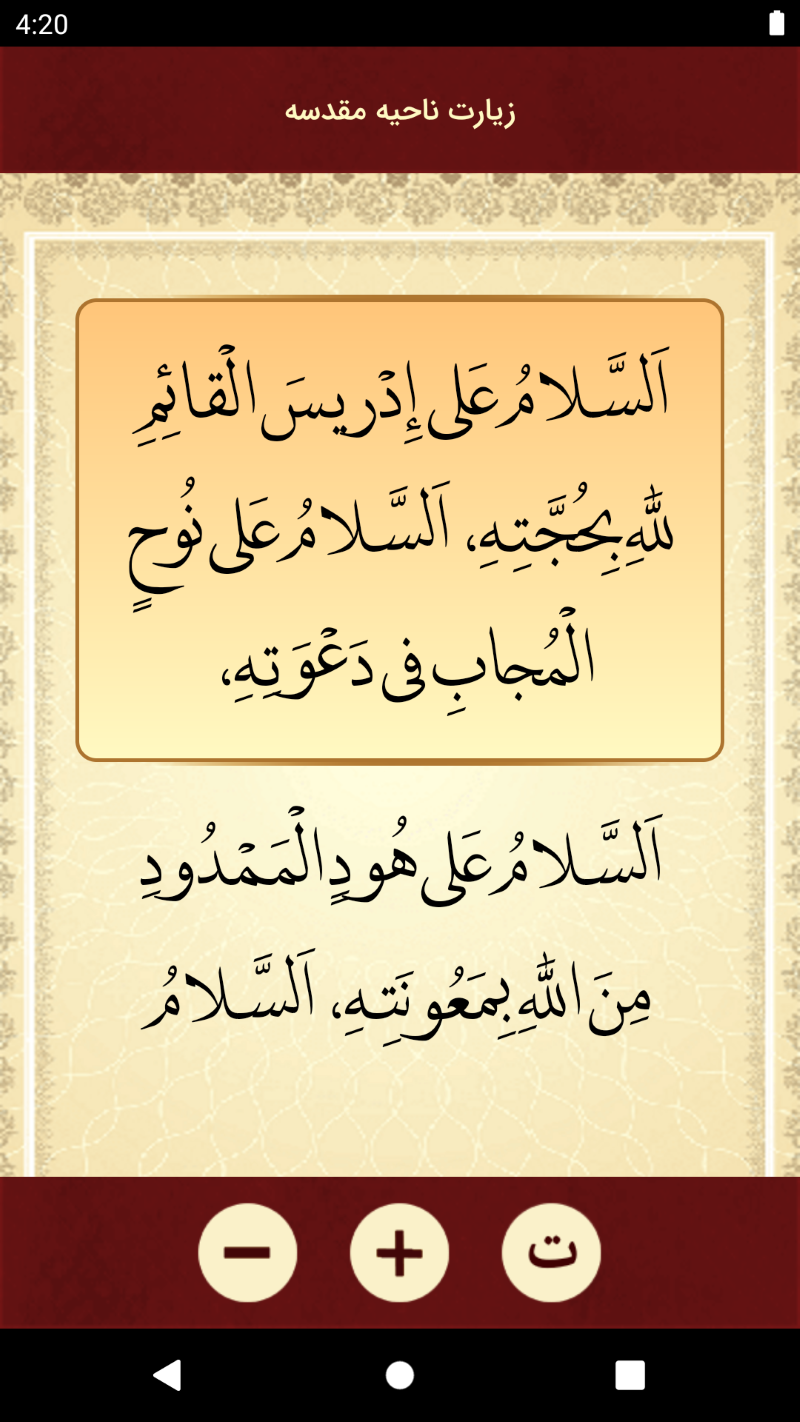 4:20
زیارت ناحیه مقدسه
اَلسَّلامُ عَلى إِدْريسَ الْقائِمِ
للهِ بِحُجَّتِهِ، اَلسَّلامُ عَلى نُوحٍ
الْمُجابِ فى دَعْوَتِهِ،
اَلسَّلامُ عَلى هُودٍ الْمَمْدُودِ
مِنَ اللهِ بِمَعُونَتِهِ، اَلسَّلامُ
− + ت